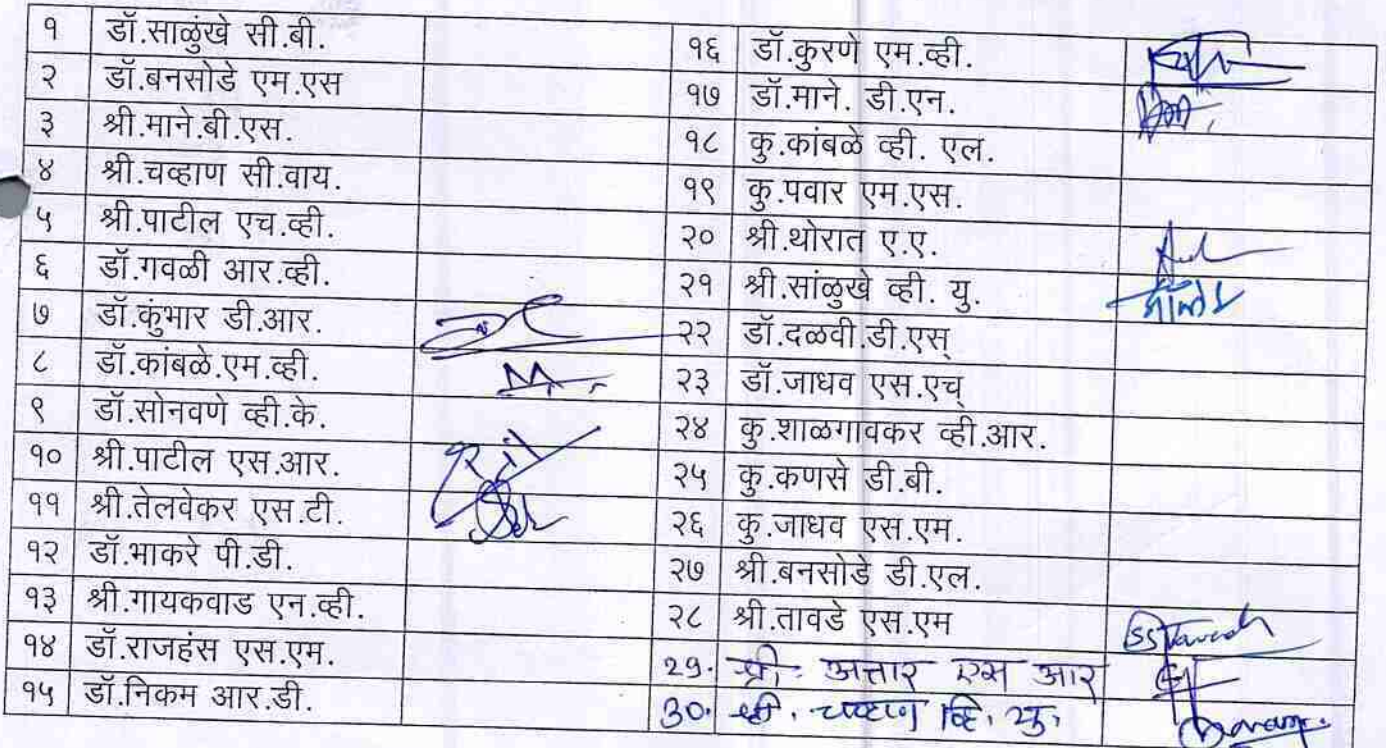 १ डॉ.साळुंखे सी.बी.
२ डॉ.बनसोडे एम.एस
३ श्री.माने.बी.एस.
४ श्री.चव्हाण सी.वाय.
५ श्री.पाटील एच.व्ही.
६ डॉ.गवळी आर.व्ही.
७ डॉ.कुंभार डी.आर.
८ डॉ.कांबळे.एम.व्ही.
९ डॉ.सोनवणे व्ही.के.
१० श्री.पाटील एस.आर.
११ श्री.तेलवेकर एस.टी.
१२ डॉ.भाकरे पी.डी.
१३ श्री.गायकवाड एन.व्ही.
१४ डॉ.राजहंस एस.एम.
१५ डॉ.निकम आर.डी.
१६ डॉ.कुरणे एम.व्ही.
१७ डॉ.माने. डी.एन.
१८ कु.कांबळे व्ही. एल.
१९ कु.पवार एम.एस.
२० श्री.थोरात ए.ए.
२१ श्री.सांळुखे व्ही. यु.
२२ डॉ.दळवी.डी.एस्
२३ डॉ.जाधव एस.एच्
२४ कु.शाळगावकर व्ही.आर.
२५ कु.कणसे डी.बी.
२६ कु.जाधव एस.एम.
२७ श्री.बनसोडे डी.एल.
२८ श्री.तावडे एस.एम
29. श्री. अत्तार एस आर
30. श्री. चव्हाण व्हि. यु.